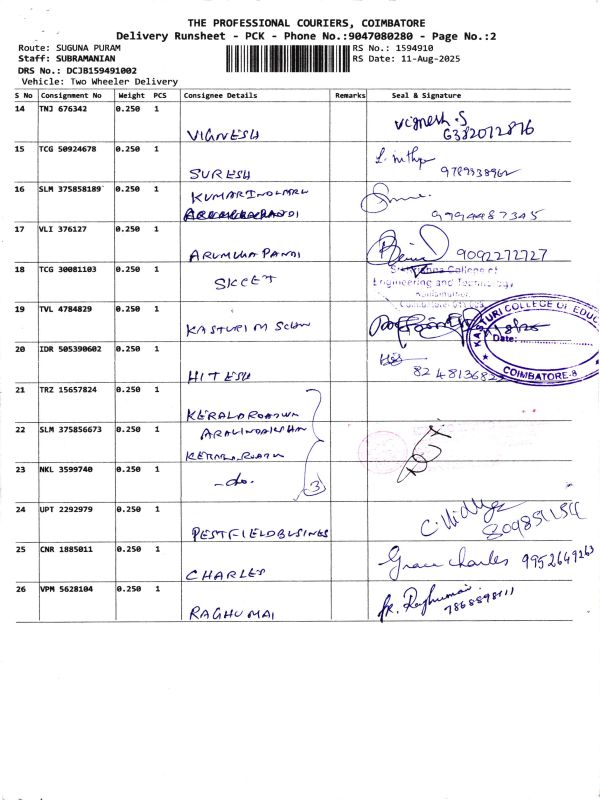 THE PROFESSIONAL COURIERS, COIMBATORE
Delivery Runsheet - PCK - Phone No.:9047080280 - Page No.:2
Route: SUGUNA PURAM RS No.: 1594910
Staff: SUBRAMANIAN RS Date: 11-Aug-2025
DRS No.: DCJB159491002
Vehicle: Two Wheeler Delivery
S No Consignment No Weight PCS Consignee Details Remarks Seal & Signature
14 TNJ 676342 0.250 1
VIGNESH Vignesh.S
6382072876
15 TCG 50924678 0.250 1
SURESH
16 SLM 375858189 0.250 1
9994487345
17 VLI 376127 0.250 1
ARUMUGA PANDI 9092272727
18 TCG 30081103 0.250 1
SKCET
Sri Krishna College of
Engineering and Technology
19 TVL 4784829 0.250 1
KASTURI M SCUN
KASTURI COLLEGE OF EDUC
Date:
COIMBATORE-8
20 IDR 505390602 0.250 1
HITESH
21 TRZ 15657824 0.250 1
22 SLM 375856673 0.250 1
23 NKL 3599740 0.250 1
-do.
3
24 UPT 2292979 0.250 1
PESTFIELDBUSINES
25 CNR 1885011 0.250 1
CHARLES Grace Charles 9952649263
26 VPM 5628104 0.250 1
RAGHUMAI
7868898111